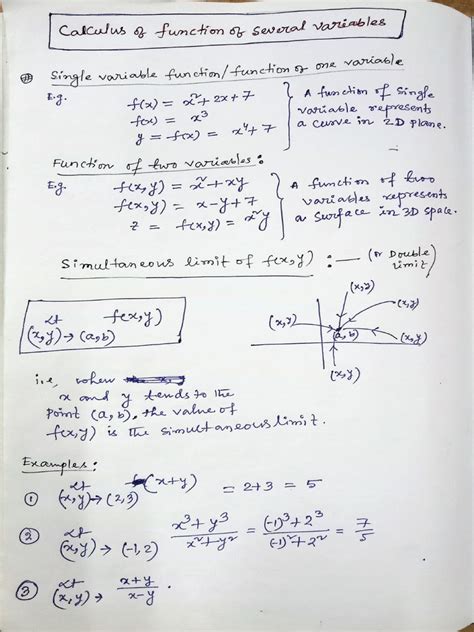 Calculus of function of several variables
Single variable function/function of one variable
E.g. f(x) = x²+2x+7
f(x) = x³
y = f(x) = x⁴+7
A function of single
variable represents
a curve in 2D plane.
Function of two variables:
E.g. f(x,y) = x²+xy
f(x,y) = x-y+7
z = f(x,y) = x²y
A function of two
variables represents
a surface in 3D space.
Simultaneous limit of f(x,y) :— (or Double
limit)
lt f(x,y)
(x,y)→(a,b)
(x,y)
(x,y)
(x,y)
(a,b)
(x,y)
(x,y)
i.e, when
x and y tends to the
point (a,b), the value of
f(x,y) is the simultaneous limit.
Examples:
① lt (x+y) = 2+3 = 5
(x,y)→(2,3)
② lt x³+y³/x²+y² = (-1)³+2³/(-1)²+2² = 7/5
(x,y)→(-1,2)
③ lt x+y/x-y .
(x,y)→